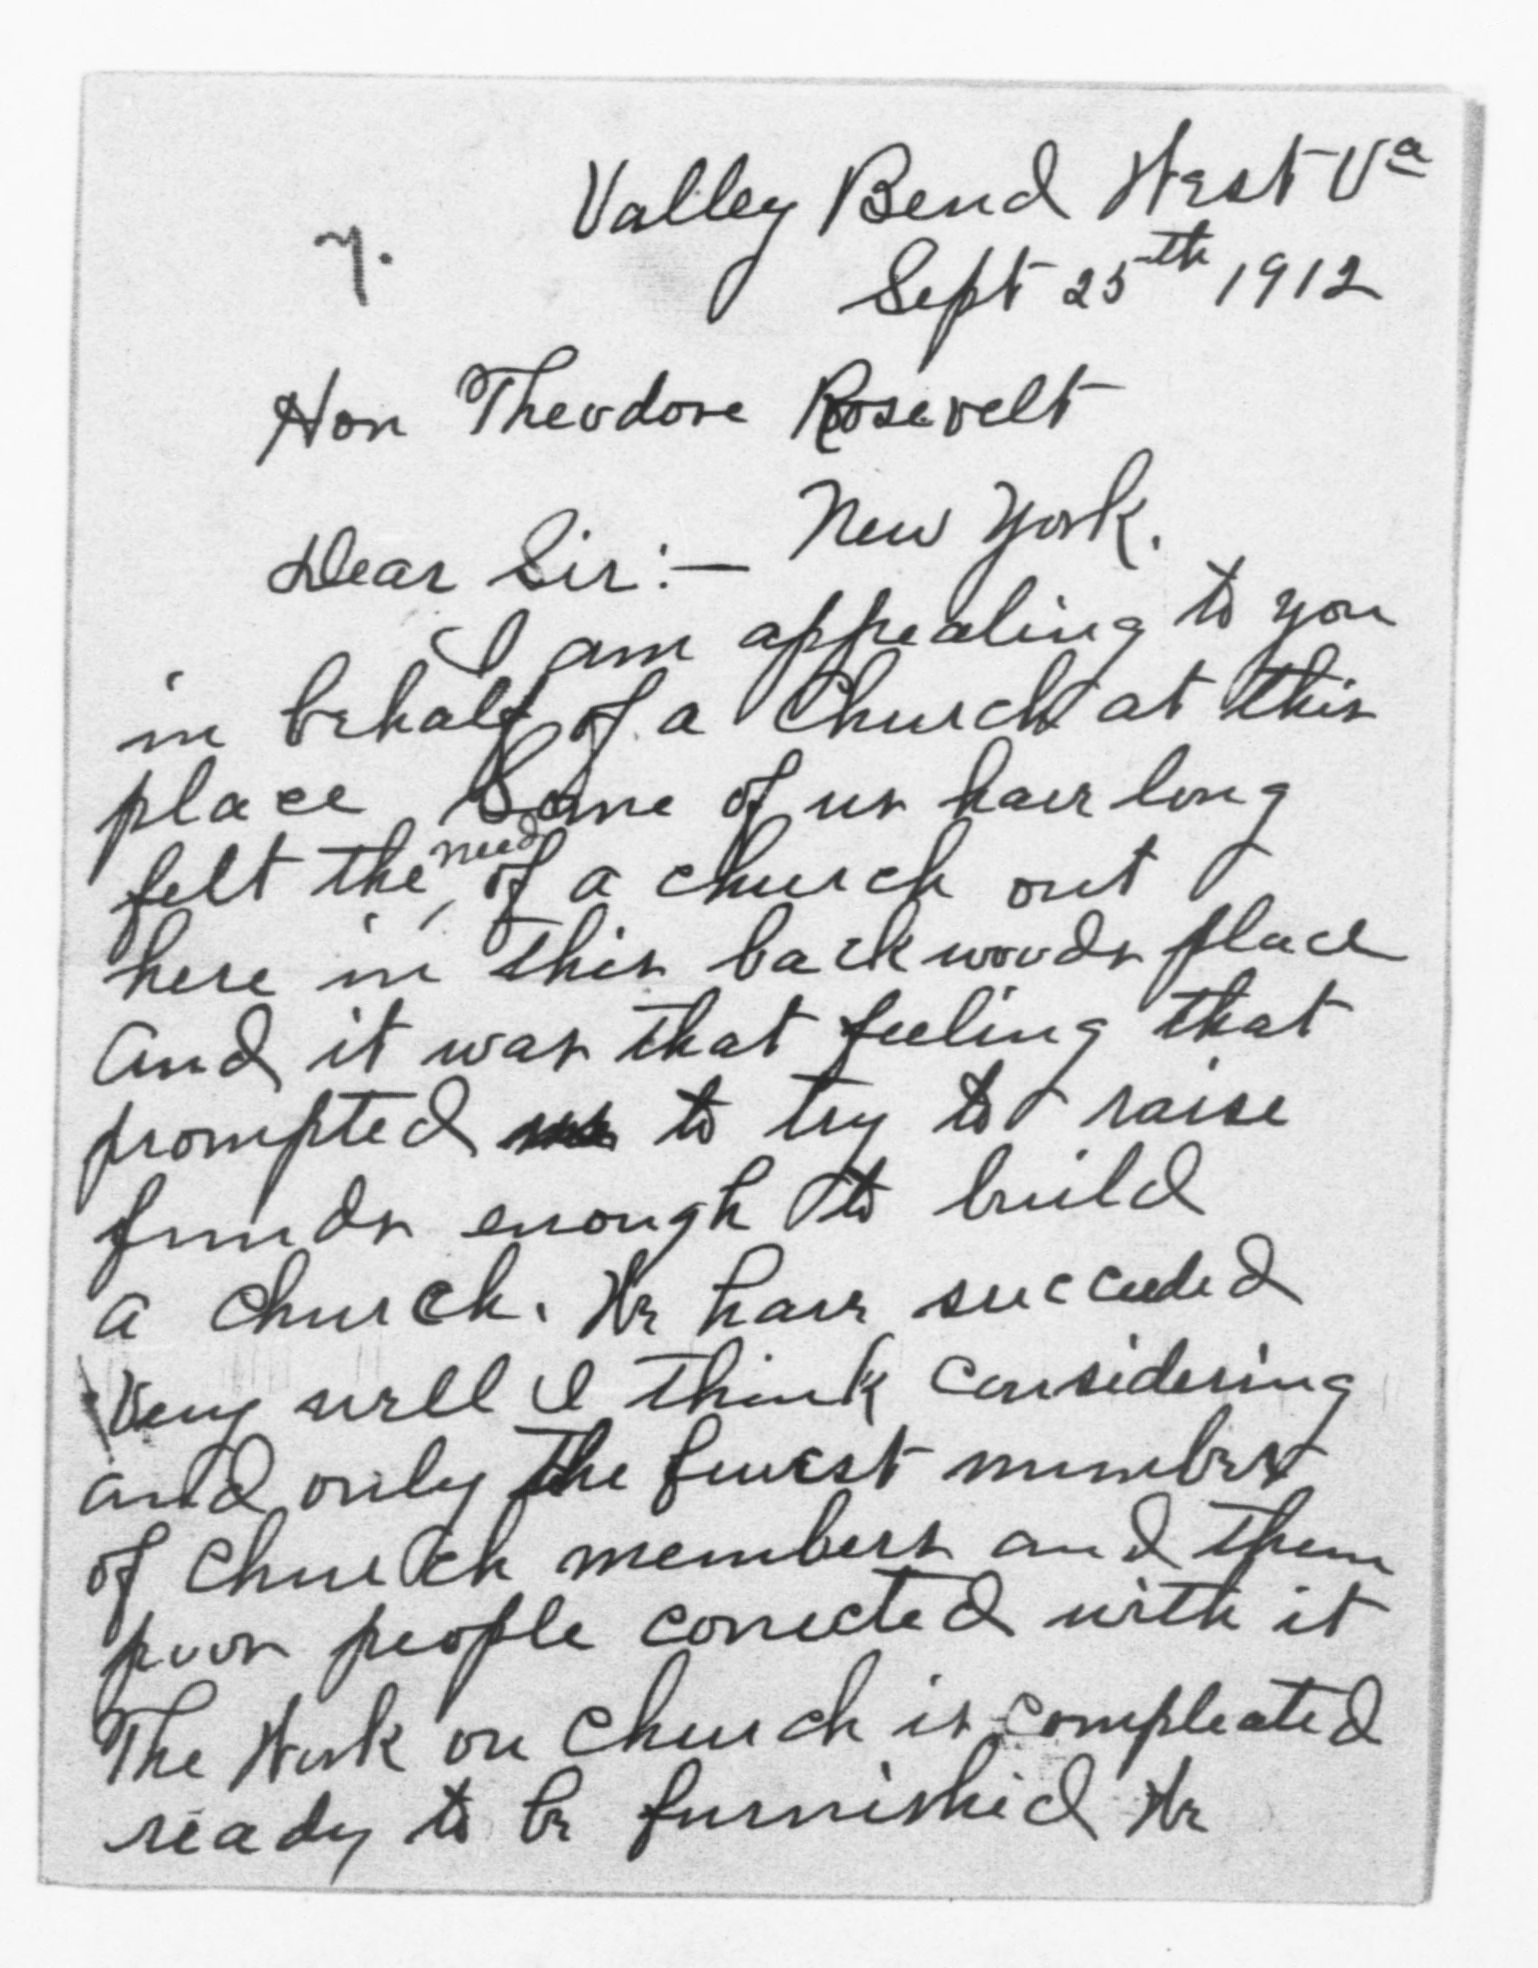 Valley Bend West Va
Y.
Sept 25th 1912
Hon Theodore Rosevelt
New York.
Dear Sir:—
I am appealing to you
in behalf of a Church at this
place Some of us have long
felt the need of a church out
here in this backwoods place
and it was that feeling that
prompted us to try to raise
funds enough to build
a church. We have succeeded
Very well I think considering
and only the fewest number
of church members and them
poor people conected with it
The Work on church is compleated
ready to be furnished We